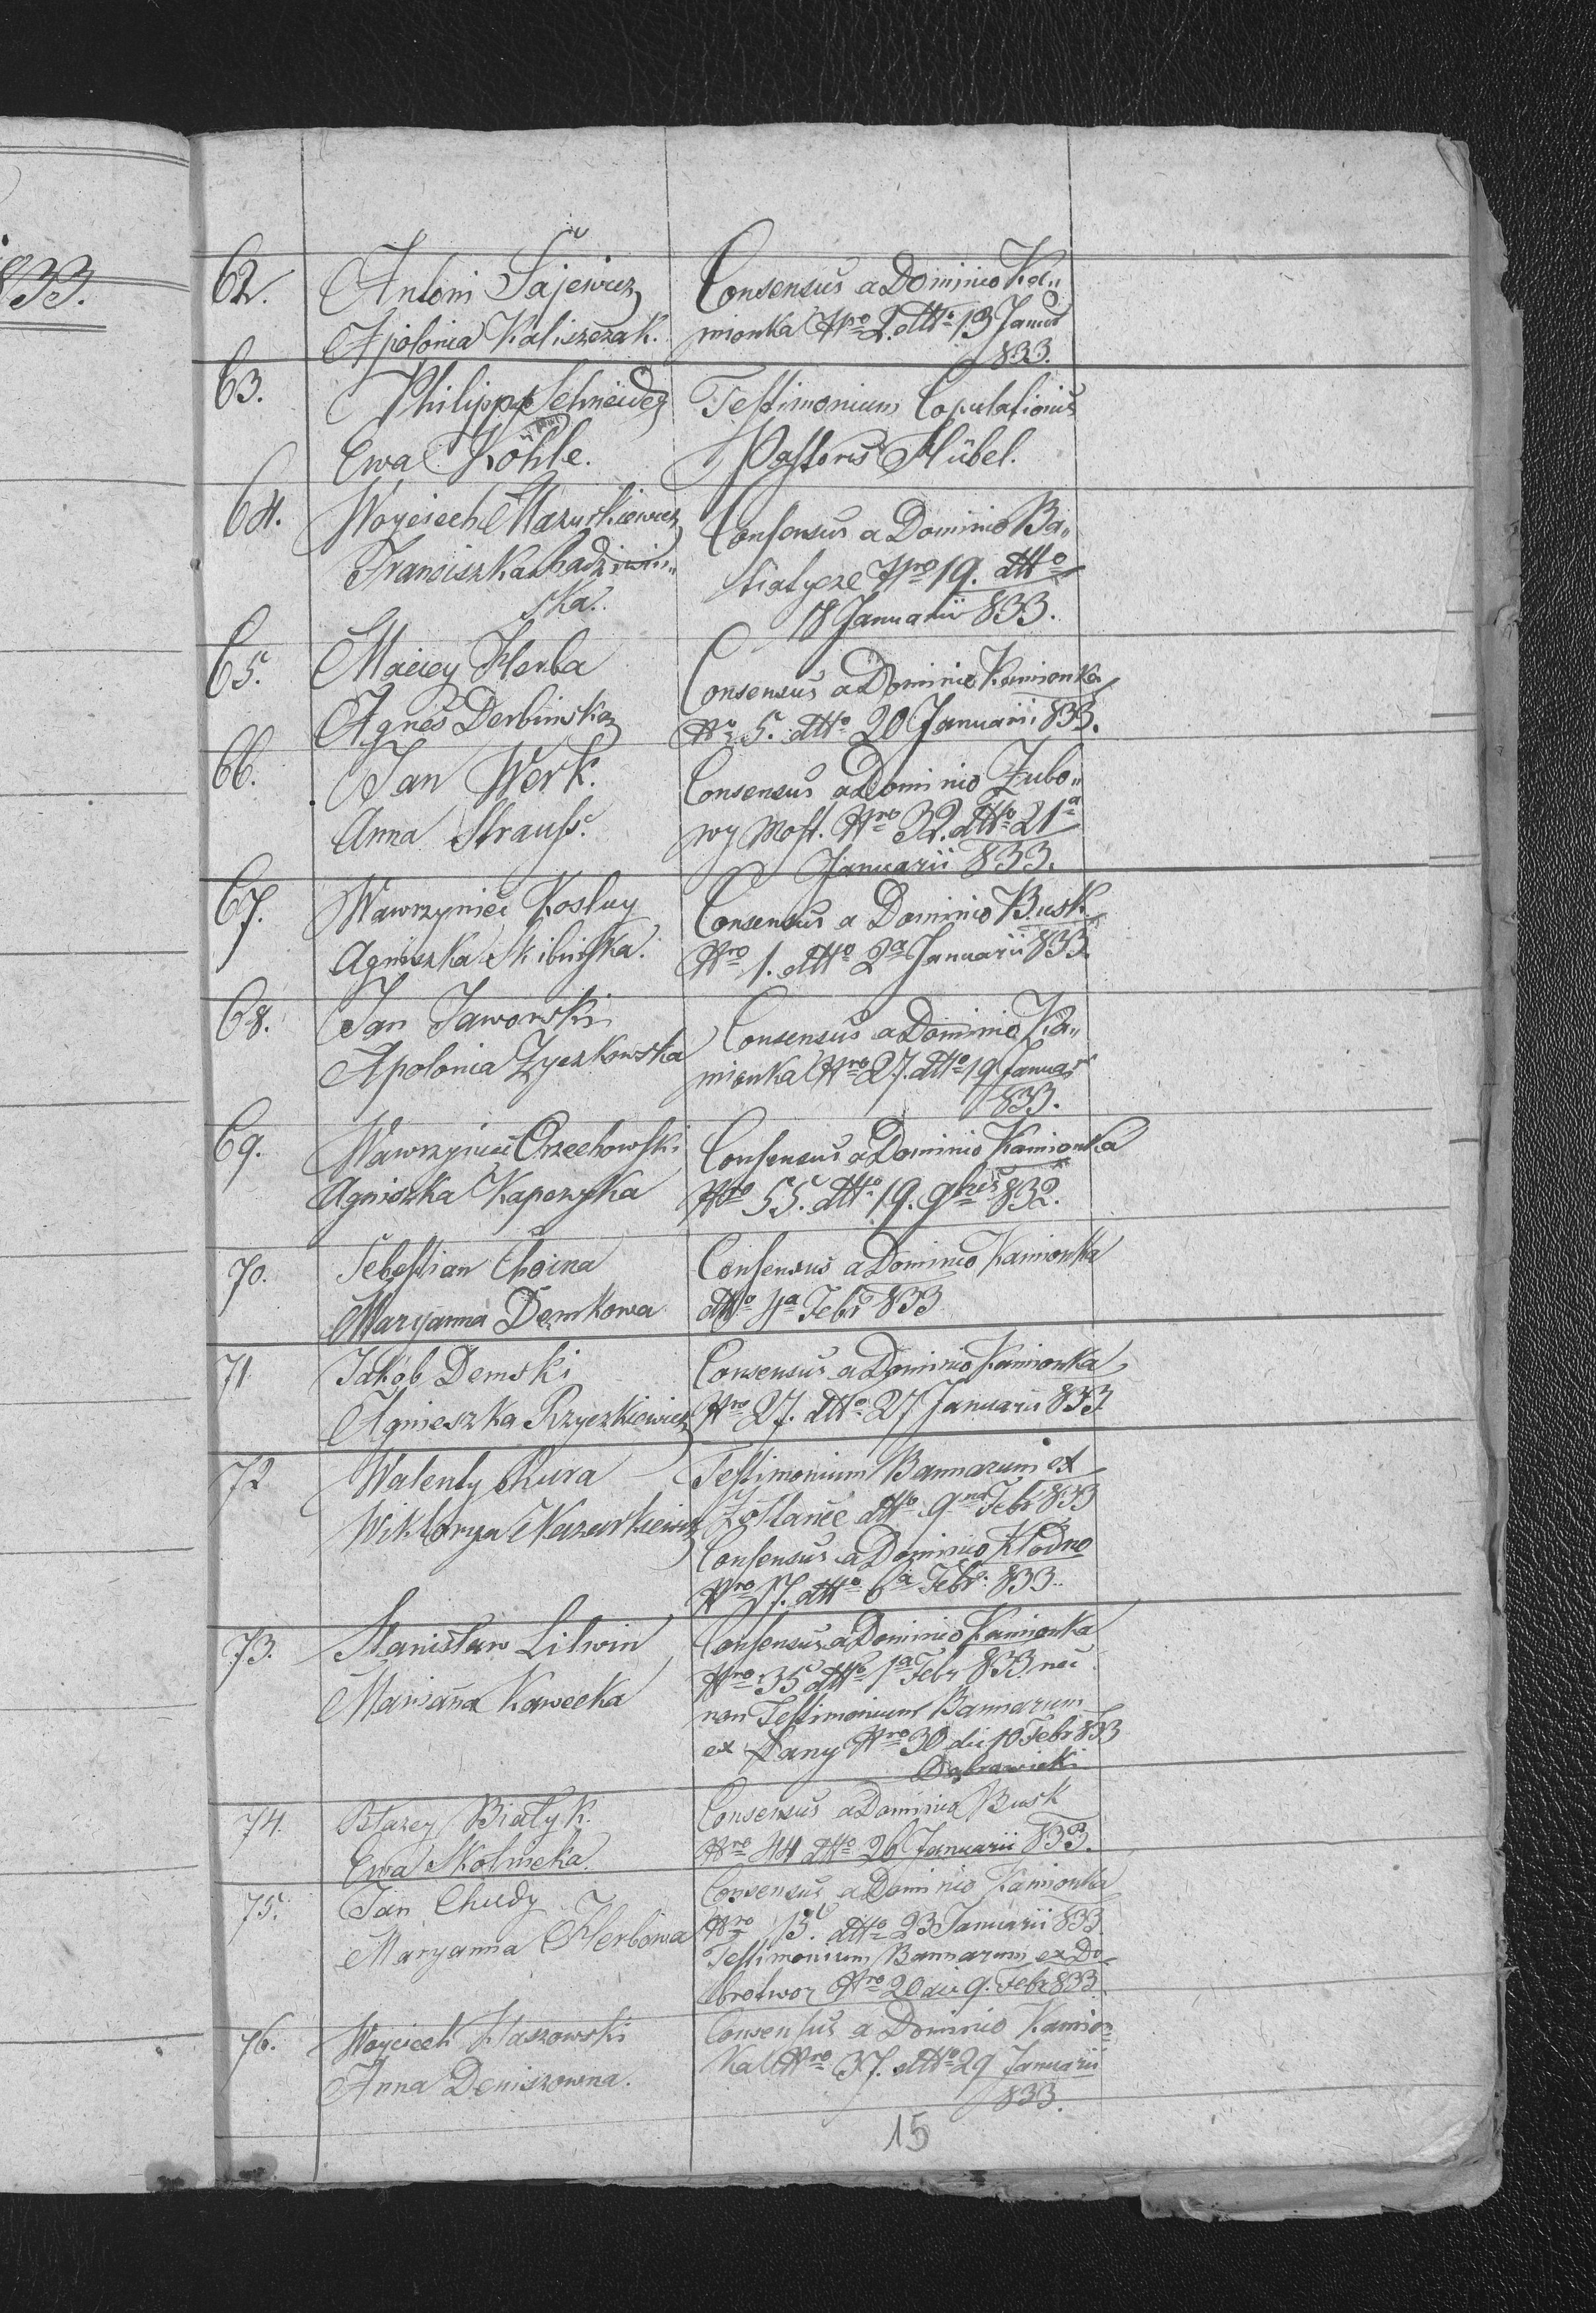 833.
62. Antoni Sajewicz Consensus a Dominio Ka„
Apolonia Kaliszczak. mionka Nro 2. dtto 13 Januar
833.
63. Philipp Schneider Testimonium Copulationis
Ewa Köhle. Pastoris Hübel.
64. Woyciech Mazurkiewicz Consensus a Dominio Ba„
Franciszka Radziwin„ tiatycze Nro 19. dtto
ska. 18 Januarii 833.
65. Maciey Herba Consensus a Dominio Kamionka
Agnes Derbinska Nro 5. dtto 20 Januarii 833.
66. Jan Werk. Consensus a Dominio Zubo„
Anna Strauss. wy most. Nro 32. dtto 21a
Januarii 833.
67. Wawrzyniec Kosluy Consensus a Dominio Busk
Agniszka Skibinska. Nro 1. dtto 2a Januarii 833.
68. Jan Jaworski Consensus a Dominio Ka„
Apolonia Zyczkowska mionka Nro 27. dtto 19 Januar
833.
69. Wawrzyniec Orzechowski Consensus a Dominio Kamionka
Agniszka Nro 55. dtto 19. 9bris 832.
70. Sebestian Choina Consensus a Dominio Kamionka
Maryanna Demkowa dtto 4a Febr 833
71 Jakób Demski Consensus a Dominio Kamionka
Agnieszka Rzyczkiewicz Nro 27. dtto 27 Januarii 833
72 Walenty Kura Testimonium Bannorum ex
Wiktorya Mazurkiewicz Żółtańce dtto 9na Febr 833
Consensus a Dominio Kłodno
Nro 17. dtto 6a Febr. 833.
73. Stanisław Litwin Consensus a Dominio Kamionka
Nro 35 dtto 1a Febr 833 nec
Mariana Kawecka non Testimonium Bannorum
ex Łany Nro 30 die 10 Febr 833
74. Błazey Biały k. Consensus a Dominio Busk
Ewa Skolnicka. Nro 44 dtto 26 Januarii 833.
75. Jan Chudy Consensus a Dominio Kamionka
Maryanna Herbowa Nro 13. dtto 23 Januarii 833.
Testimonium Bannorum ex Do
brotwor Nro 20 die 9. Febr 833.
76. Woyciech Consensus a Dominio Kamion„
Anna Deniszowna. ka Nro 37. dtto 29 Januarii
833.
15